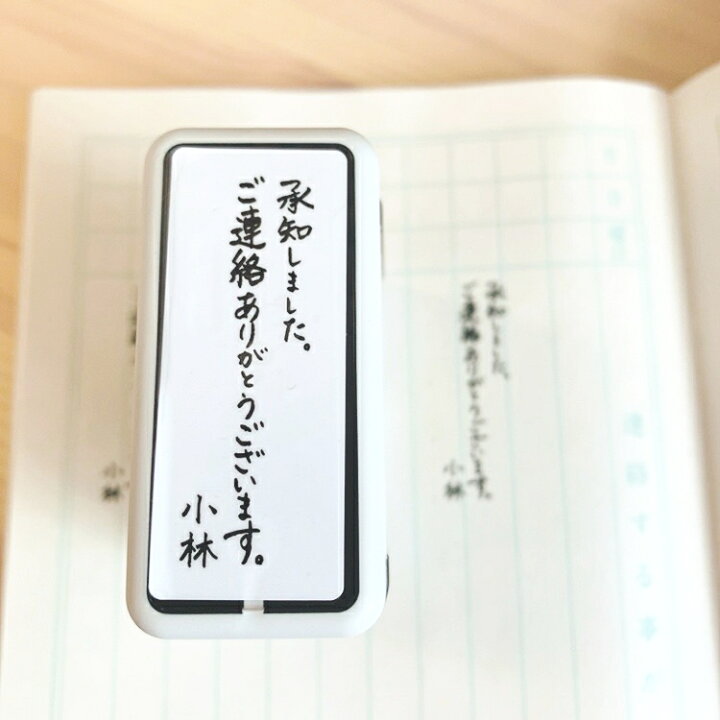 承知しました。
ご連絡ありがとうございます。
小林
承知しました。
ご連絡ありがとうございます。
小林
小林
連絡する事